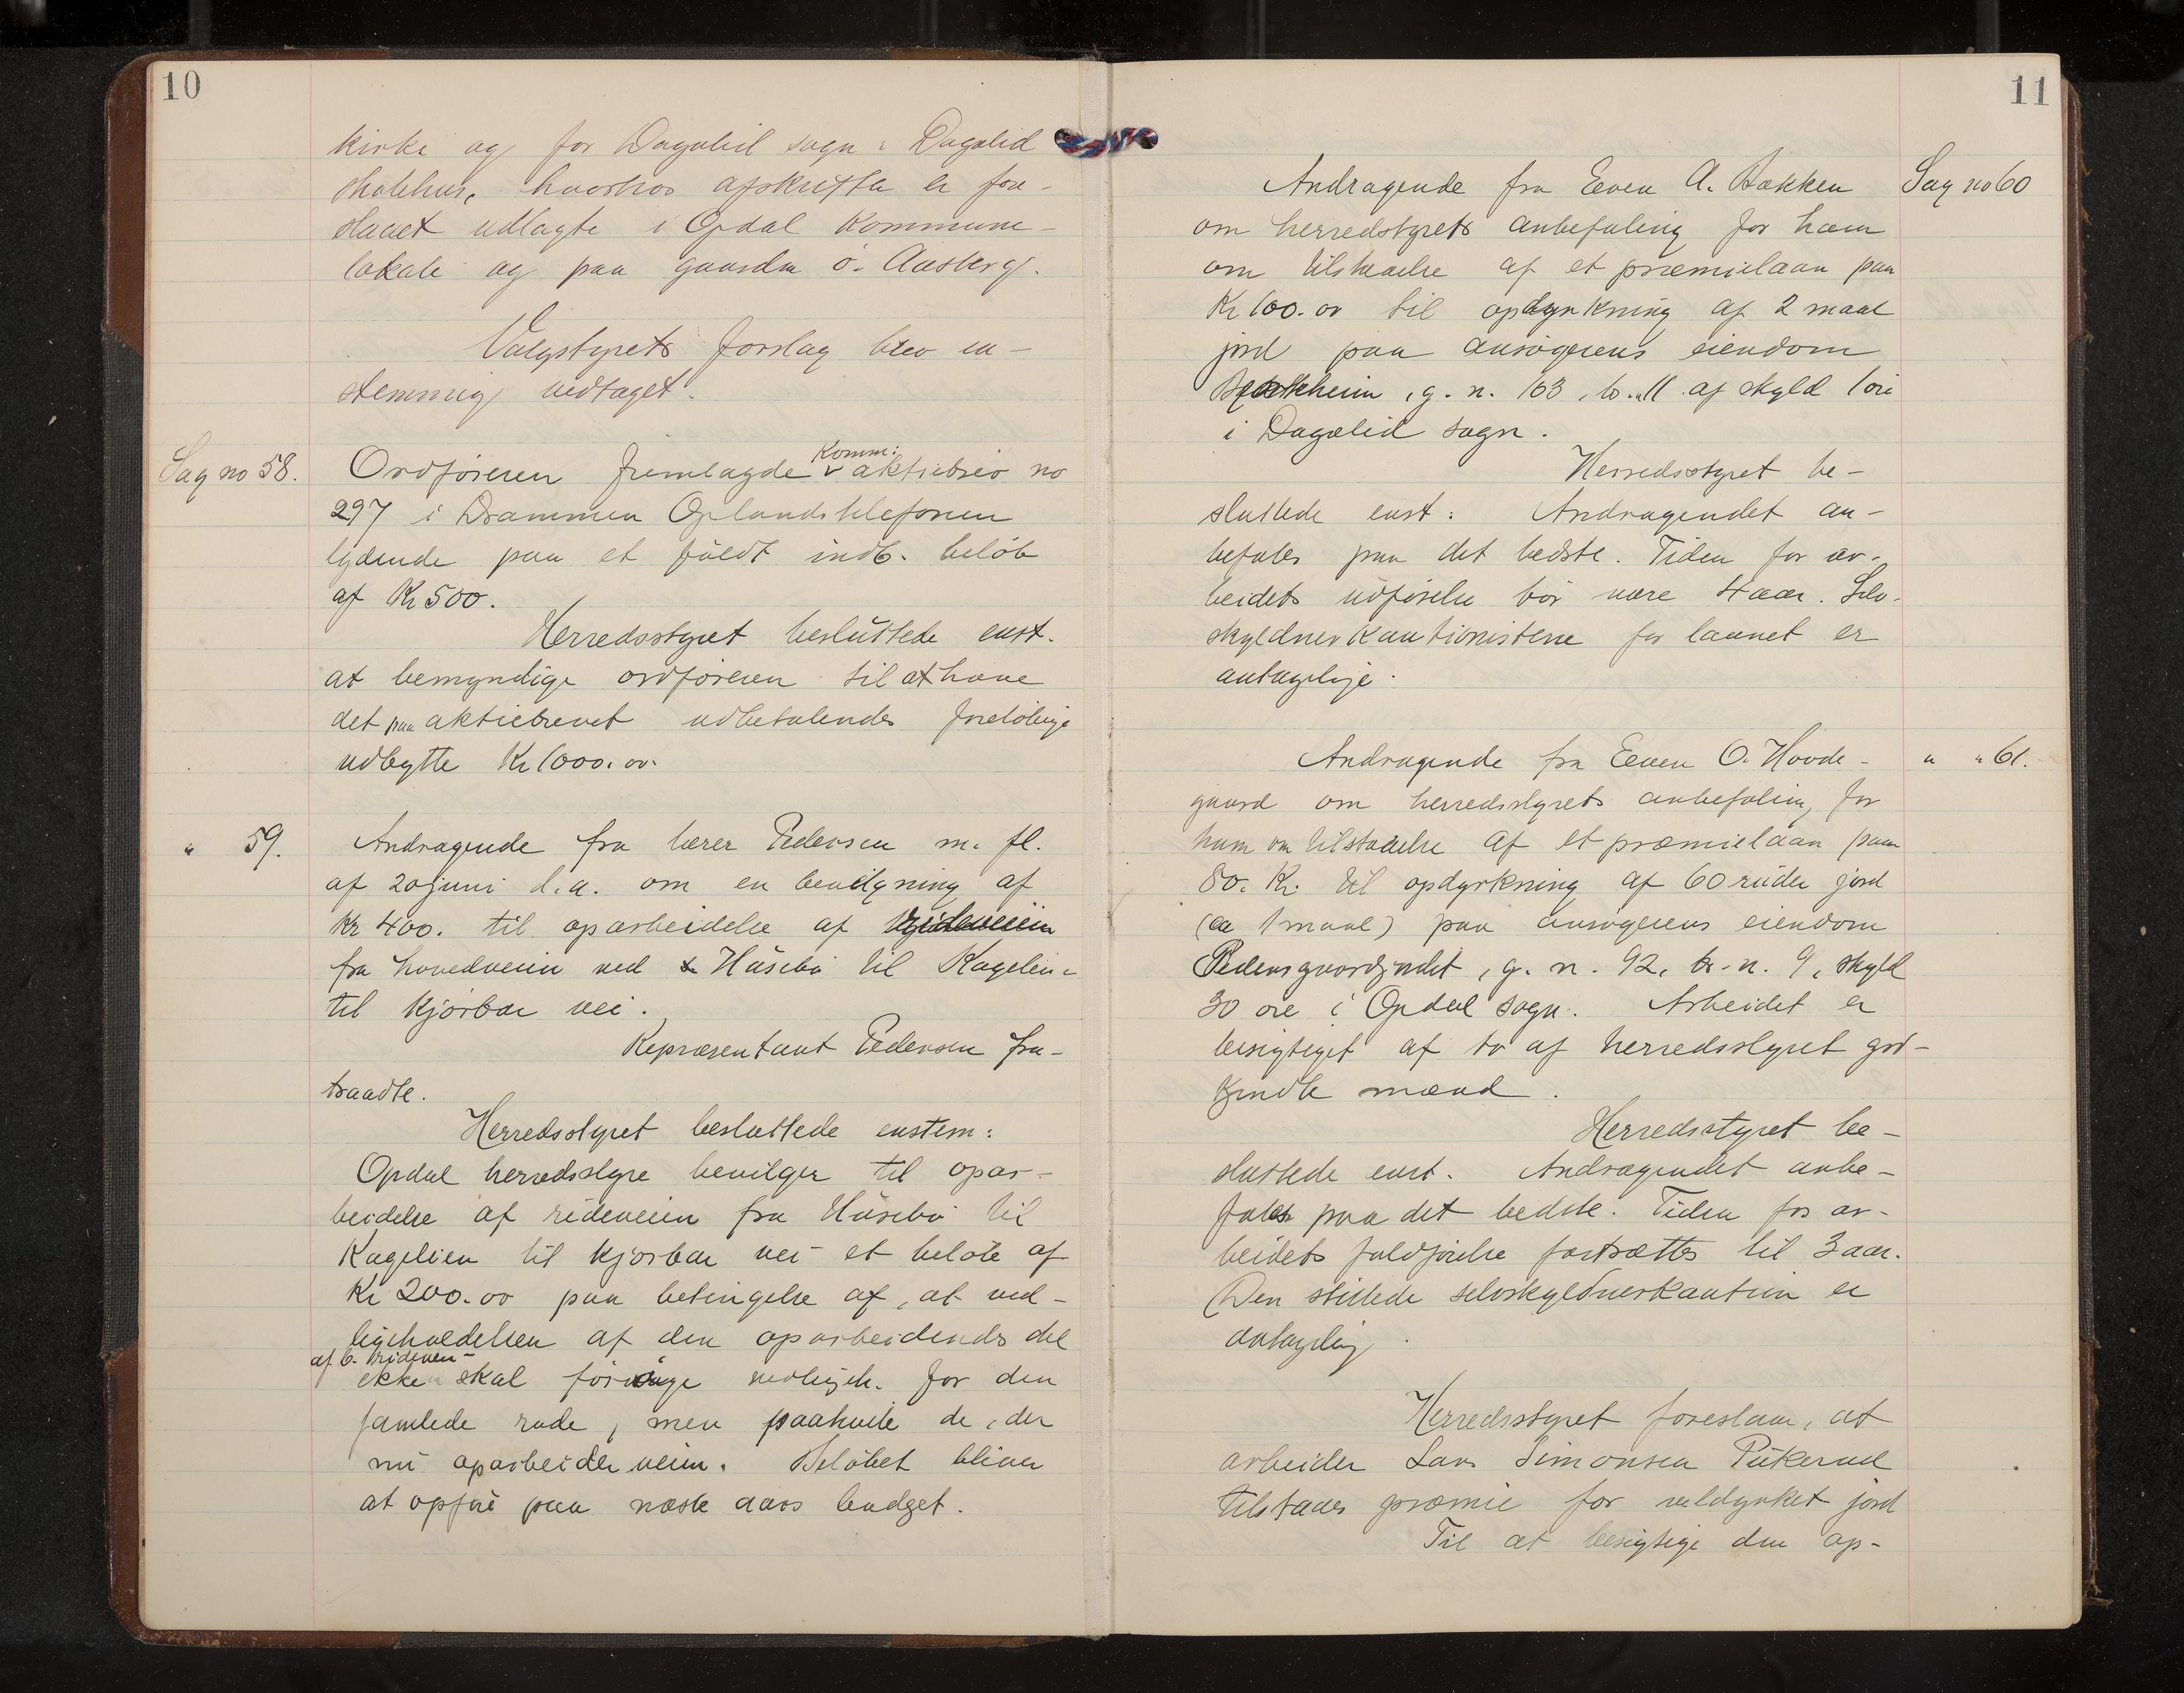 10
kirke og for Dagalid sogn: Dagalid
skolehus, hvorhos afskrifter er fore-
slaaet udlagte i Opdal Kommune-
lokale og paa gaarden ö. Aasberg.
Valgstyrets forslag blev en-
stemmig vedtaget.
Sag no 58. Ordföreren fremlagde Komm: aktiebrev no
297 i Drammen Oplands telefonen
lydende paa et fuldt indb. belöb
af Kr 500.
Herredsstyret besluttede enst.
at bemyndige ordföreren til at hæve
det paa aktiebrevet udbetalendes forelöbige
udbytte Kr 1000.00.
" 59. Andragende fra lærer Pedersen m. fl.
af 20 juni d.a. om en bevilgning af
Kr 400. til oparbeidelse af
fra hovedveien ved Húsebö til Kagelien
til kjörbar vei.
Repræsentant Pedersen fra-
traadte.
Herredsstyret besluttede enstem:
Opdal herredsstyre bevilger til opar-
beidelse af rideveien fra Húsebö til
Kagelien til kjörbar vei et belöb af
Kr 200.00 paa betingelse af, at ved-
ligeholdelsen af den oparbeidendes del
af b. rideveien
ekke skal vedligeh. for den
samlede rode, men paahvile de, der
nú oparbeider veien. Belöbet bliver
at opföre paa næste aars budget.
11
Andragende fra Even A. Bakken Sag no 60
om herredstyrets anbefaling for ham
om tilstaaelse af et præmielaan paa
Kr 100.00 til opdyrkning af 2 maal
jord paa ansögerens eiendom
g. n. 103, b. " 11 af skyld 1 öre
i Dagalid sogn.
Herredsstyret be-
sluttede enst: Andragendet an-
befales paa det bedste. Tiden for ar-
beidets udförelse bör være 4 aar. Selv-
skyldnerkautionisterne for laanet er
antagelige.
Andragende fra Even O. Hovde- " " 61.
gaard om herredsstyrets anbefaling for
ham om tilstaaelse af et præmielaan paa
80. Kr. til opdyrkning af 60 ruder jord
(ca 1 maal) paa ansögerens eiendom
Pedersgaardjndet, g. n. 92, br. n. 9, skyld
30 öre i Opdal sogn. Arbeidet er
besigtiget af to af herredsstyret god-
kjendte mænd.
Herredsstyret be-
sluttede enst. Andragendet anbe-
fales paa det bedste. Tiden for ar-
beidets fuldförelse fortsættes til 3 aar.
Den stillede selvskyldnerkaution er
antagelig.
Herredsstyret foreslaar, at
arbeider Lars Simonsen Pükerud
tilstaaes præmie for veldyrket jord
Til at besigtige den op-